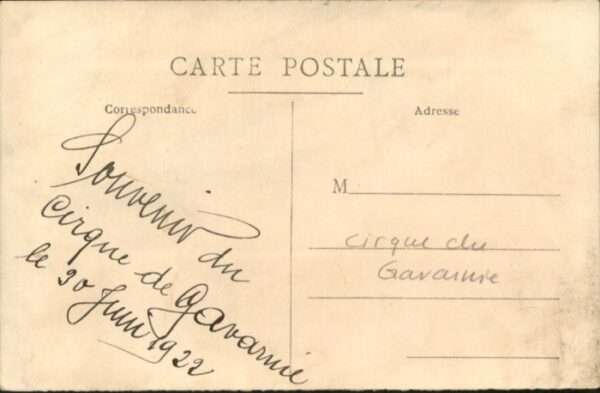 CARTE POSTALE
Correspondance
Adresse
Souvenir du
Cirque de Gavarnie
le 30 Juin 1922
M
Cirque du
Gavarnie